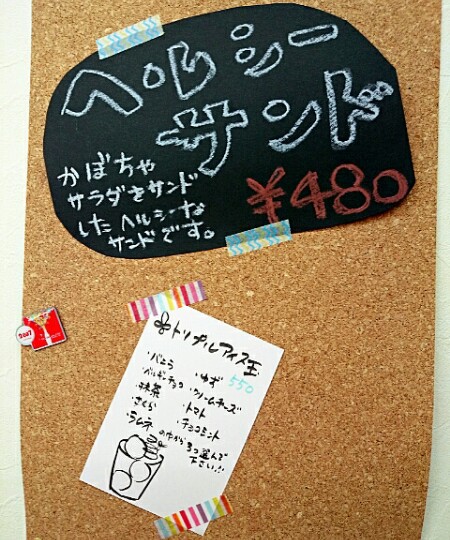 ヘルシー
サンド
かぼちゃ
サラダをサンド
したヘルシーな
サンドです。
¥480
トリプルアイス玉
550
・バニラ
・ベルギーチョコ
・抹茶
・さくら
・ラムネ
・ゆず
・クリームチーズ
・トマト
・チョコミント
の中から3つ選んで
下さい!!